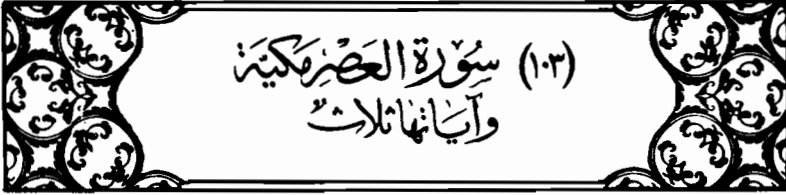 (١٠٣) سُوْرَةُ العَصْرِ مَكِيَّة
وَآيَاتُهَا ثَلَاثٌ